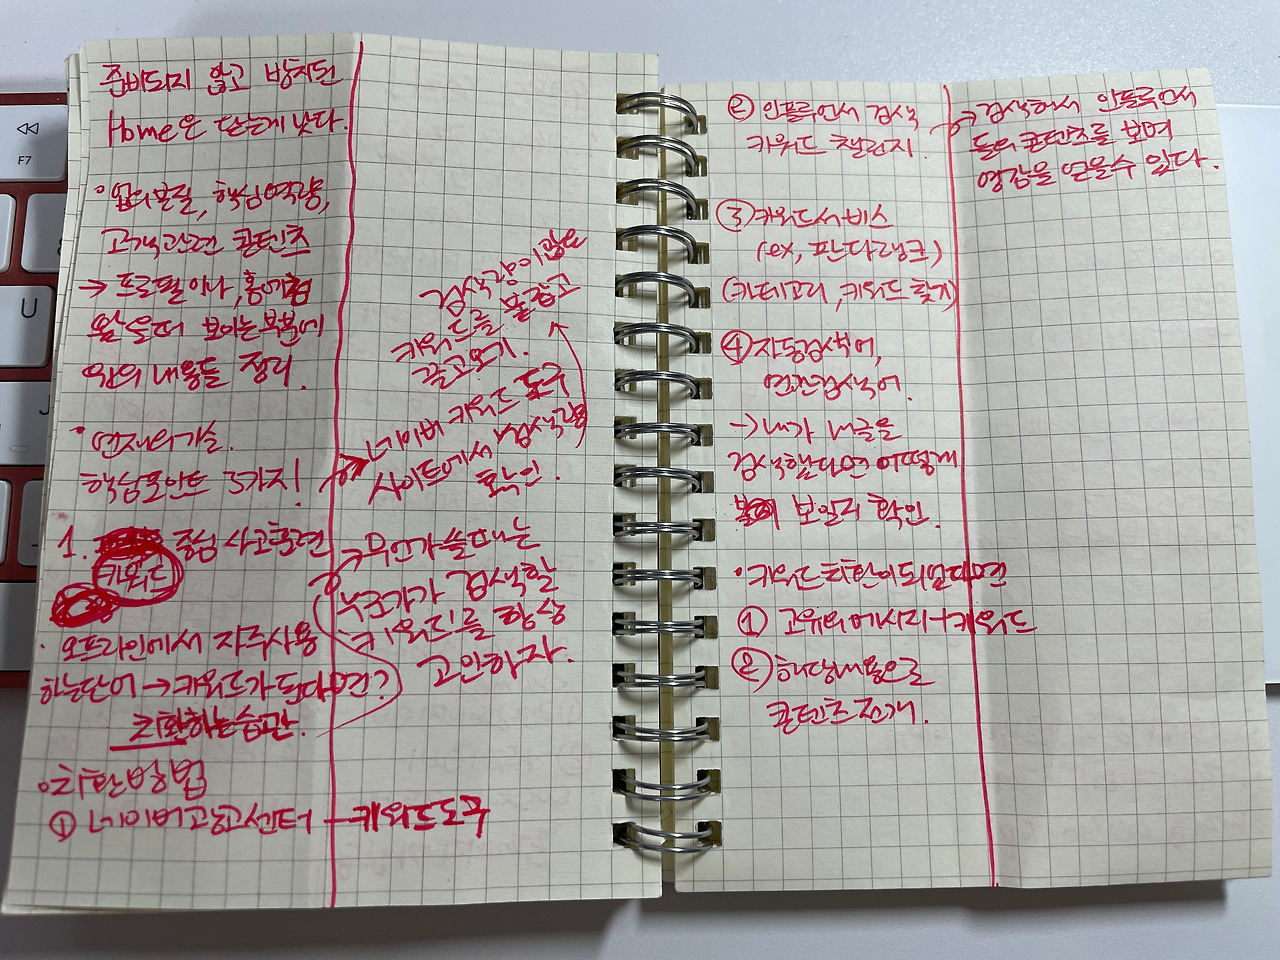 준비되지 않고 방치된
Home은 닫는게 낫다.
• 업의본질, 핵심역량,
고객관련 콘텐츠
→ 프로필이나, 홈에
왔을때 보이는부분에
위의 내용들 정리.
• 연재의기술.
핵심포인트 3가지!
1. 중심 사고훈련
키워드
• 오프라인에서 자주사용
하는단어 → 키워드가 된다면?
치환하는습관.
• 치환방법
① 네이버광고센터 - 키워드도구
검색량이많은
키워드를 붙잡고
끌고오기.
→ 네이버 키워드 도구
사이트에서 검색량
확인.
→ 무언가 쓸때는
누군가가 검색할
키워드를 항상
고민하자.
② 인플루언서 검색
키워드 챌린지.
→ 검색해서 인플루언서
들의 콘텐츠를 보며
영감을 얻을수 있다.
③ 키워드서비스
(ex, 판다랭크)
(카테고리, 키워드 찾기)
④ 자동검색어,
연관검색어.
→ 내가 내글을
검색했다면 어떻게
보일지 확인.
• 키워드치환이되었다면
① 고유의메시지+키워드
② 해당내용으로
콘텐츠 전개.
F7
U
J